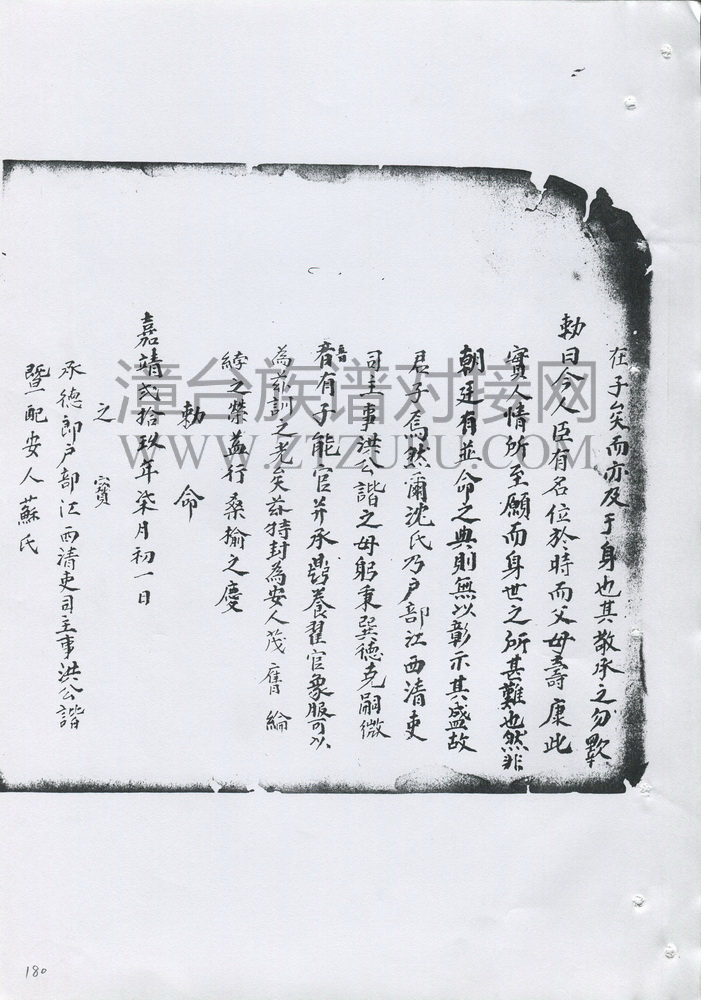 在子矣而亦及于身也其敬承之勿斁
勅曰今人臣有名位於時而父母壽康此
實人情所至願而身世之所甚難也然非
朝廷有並命之典則無以彰示其盛故
君子焉然爾沈氏乃戶部江西清吏
司主事洪公諧之母躬秉巽德克嗣微
音有子能官并承鼎養翟官象服可以
為茲訓之光矣茲特封為安人茂膺綸
綍之榮益行桑榆之慶
勅命
嘉靖弍拾玖年柒月初一日
之寶
承德郎戶部江西清吏司主事洪公諧
暨配安人蘇氏
漳台族谱对接网
WWW.ZTZUPU.COM
180